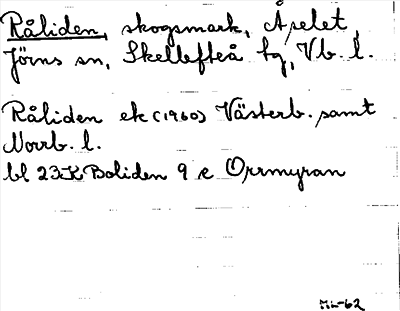 Råliden, skogsmark, Åselet,
Jörns sn, Skellefteå tg, Vb. l.
Råliden ek (1960) Västerb. samt
Norrb. l.
bl 23K Boliden 9 e Orrmyran
Mi-62